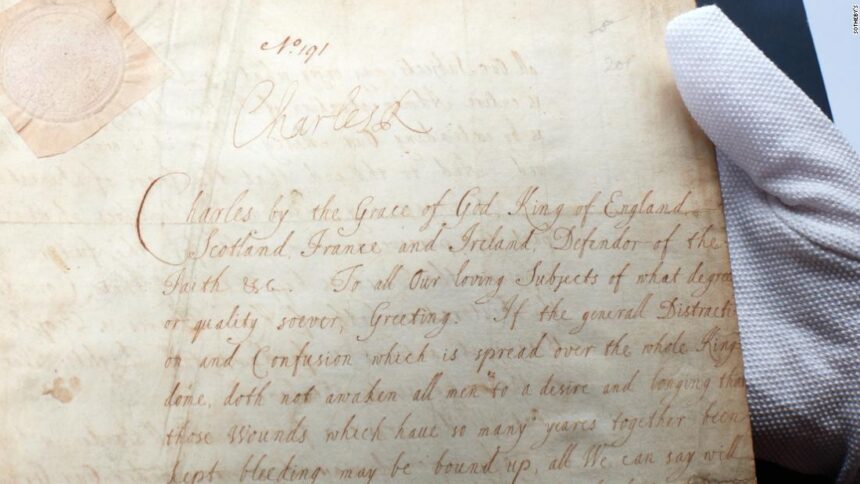 SOTHEBY'S
No 191
Charles R
Charles by the Grace of God, King of England,
Scotland, France and Ireland, Defendor of the
Faith &c. To all Our loving Subjects of what degree
or quality soever, Greeting. If the generall Distracti-
on and Confusion which is spread over the whole King-
dome, doth not awaken all men to a desire and longing that
those Wounds which have so many yeares together been
kept bleeding may be bound up, all We can say will